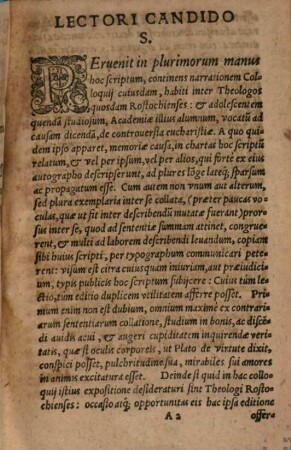 LECTORI CANDIDO
S.
PEruenit in plurimorum manus
hoc scriptum, continens narrationem Col-
loquij cuiusdam, habiti inter Theologos
quosdam Rostochienses: & adolescentem
quendā studiosum, Academiæ illius alumnum, vocatū ad
causam dicendā, de controuersia eucharistiæ. A quo qui-
dem ipso apparet, memoriæ causa, in chartas hoc scriptū
relatum, & vel per ipsum, vel per alios, qui forte ex eius
autographo descripserunt, ad plures lōge lateq; sparsum
ac propagatum esse. Cum autem non vnum aut alterum,
sed plura exemplaria inter se collata, (præter paucas vo-
culas, quæ ut fit inter describendū mutatæ fuerant) pror-
sus inter se, quod ad sententiæ summam attinet, congrue-
rent, & multi ad laborem describendi leuandum, copiam
sibi huius scripti, per typographum communicari pete-
rent: visum est citra cuiusquam iniuriam, aut præiudici-
um, typis publicis hoc scriptum subijcere: Cuius tūm le-
ctio, tum editio duplicem vtilitatem afferre posset. Pri-
mum enim non est dubium, omnium maximè ex contrari-
arum sententiarum collatione, studium in bonis, ac discē-
di audis acui, & augeri cupiditatem inquirendæ veri-
tatis, quæ si oculis corporeis, ut Plato de virtute dixit,
conspici posset, pulchritudine sua, mirabiles sui amores
in animis excitatura esset. Deinde si quid in hac collo-
quij istius expositione desiderāturi sint Theologi Rosto-
chienses: occasio atq; opportunitas eis hac ipsa editione
A 2 offera-